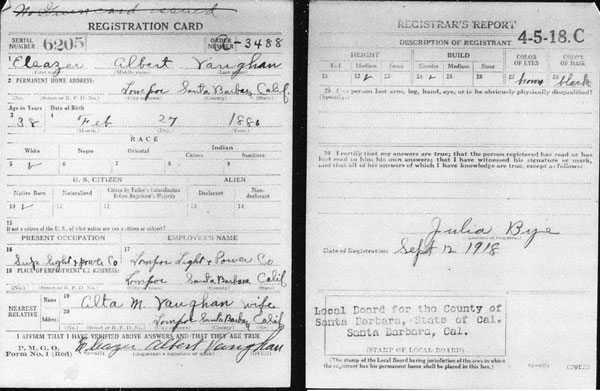 REGISTRATION CARD
SERIAL NUMBER 6205 ORDER NUMBER 3488
1 Eleazer Albert Vaughan
2 PERMANENT HOME ADDRESS:
Lompoc Santa Barbara Calif.
Age in Years Date of Birth
3 38 4 Feb 27 1880
RACE
White Negro Oriental Indian
Citizen Noncitizen
5 6 7 8 9
U. S. CITIZEN ALIEN
Native Born Naturalized Citizen by Father's Naturalization Before Registrant's Majority Declarant Non-declarant
10 11 12 13 14
15
If not a citizen of the U. S., of what nation are you a citizen or subject?
PRESENT OCCUPATION EMPLOYER'S NAME
16 Sup Light & Power Co 17 Lompoc Light & Power Co
18 PLACE OF EMPLOYMENT OR BUSINESS:
Lompoc Santa Barbara Calif
NEAREST RELATIVE 19 Alta M. Vaughan wife
20 Lompoc Santa Barbara Calif
I AFFIRM THAT I HAVE VERIFIED ABOVE ANSWERS AND THAT THEY ARE TRUE
P. M. G. O.
Form No. 1 (Red) Eleazer Albert Vaughan
REGISTRAR'S REPORT
4-5-18. C
DESCRIPTION OF REGISTRANT
HEIGHT BUILD COLOR OF EYES COLOR OF HAIR
Tall Medium Short Slender Medium Stout
21 22 23 24 25 26 27 brown 28 black
29 Has person lost arm, leg, hand, eye, or is he obviously physically disqualified?
(Specify.)
30 I certify that my answers are true; that the person registered has read or has
had read to him his own answers; that I have witnessed his signature or mark,
and that all of his answers of which I have knowledge are true, except as follows:
Julia Bye
Date of Registration Sept 12 1918
Local Board for the County of
Santa Barbara, State of Cal.
Santa Barbara, Cal.
(STAMP OF LOCAL BOARD)
(The stamp of the Local Board having jurisdiction of the area in which
the registrant has his permanent home shall be placed in this box.)
(OVER)